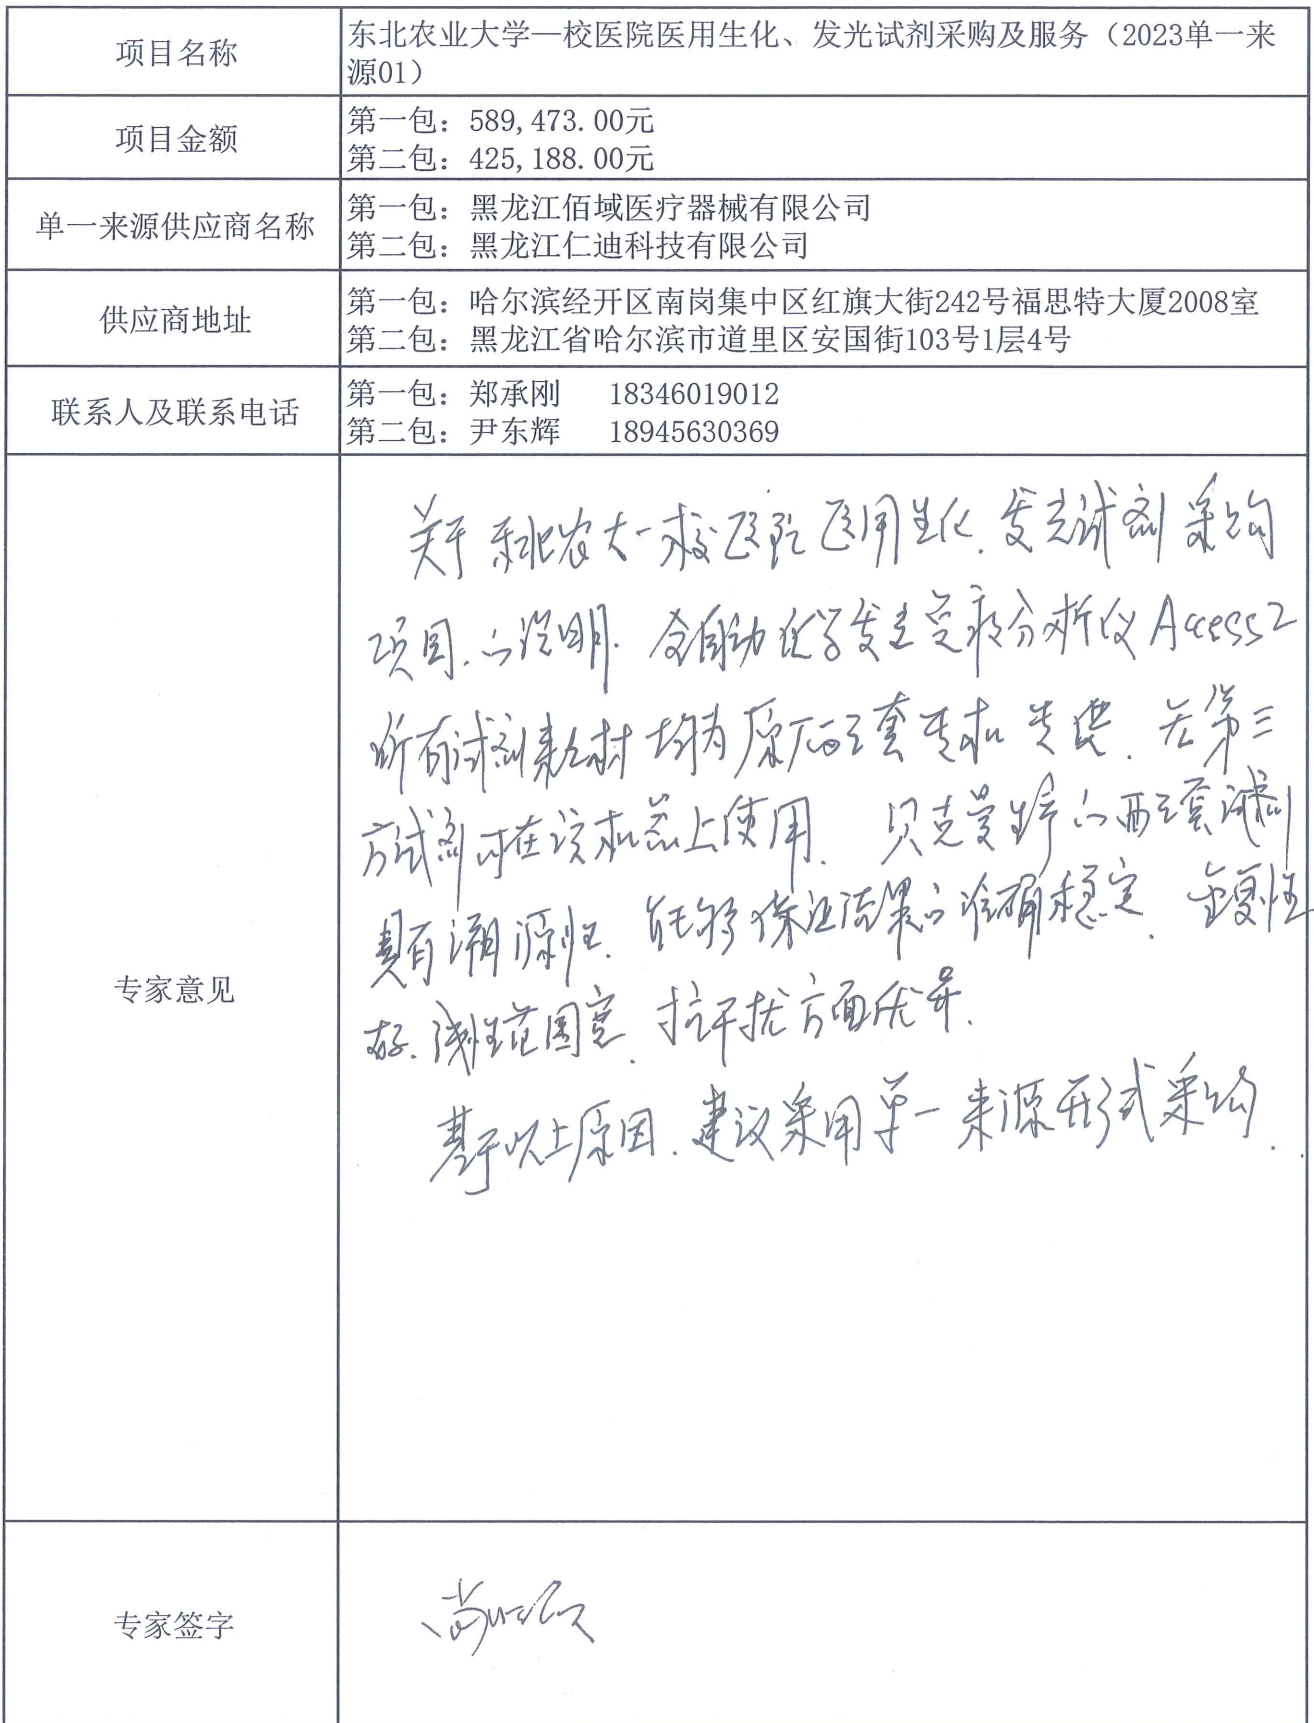 项目名称
东北农业大学—校医院医用生化、发光试剂采购及服务（2023单一来
源01）
项目金额
第一包：589,473.00元
第二包：425,188.00元
单一来源供应商名称
第一包：黑龙江佰域医疗器械有限公司
第二包：黑龙江仁迪科技有限公司
供应商地址
第一包：哈尔滨经开区南岗集中区红旗大街242号福思特大厦2008室
第二包：黑龙江省哈尔滨市道里区安国街103号1层4号
联系人及联系电话
第一包：郑承刚 18346019012
第二包：尹东辉 18945630369
专家意见
关于东北农大一校医院医用生化、发光试剂采购
项目的说明. 全自动化学发光免疫分析仪Access2
所有试剂耗材均为原厂配套专机专供. 无第三
方试剂可在该机器上使用. 贝克曼生产的配套试剂
具有溯源性. 能够保证结果的准确稳定、重复性
好、线性范围宽、抗干扰方面优异.
基于以上原因. 建议采用单一来源形式采购.
专家签字